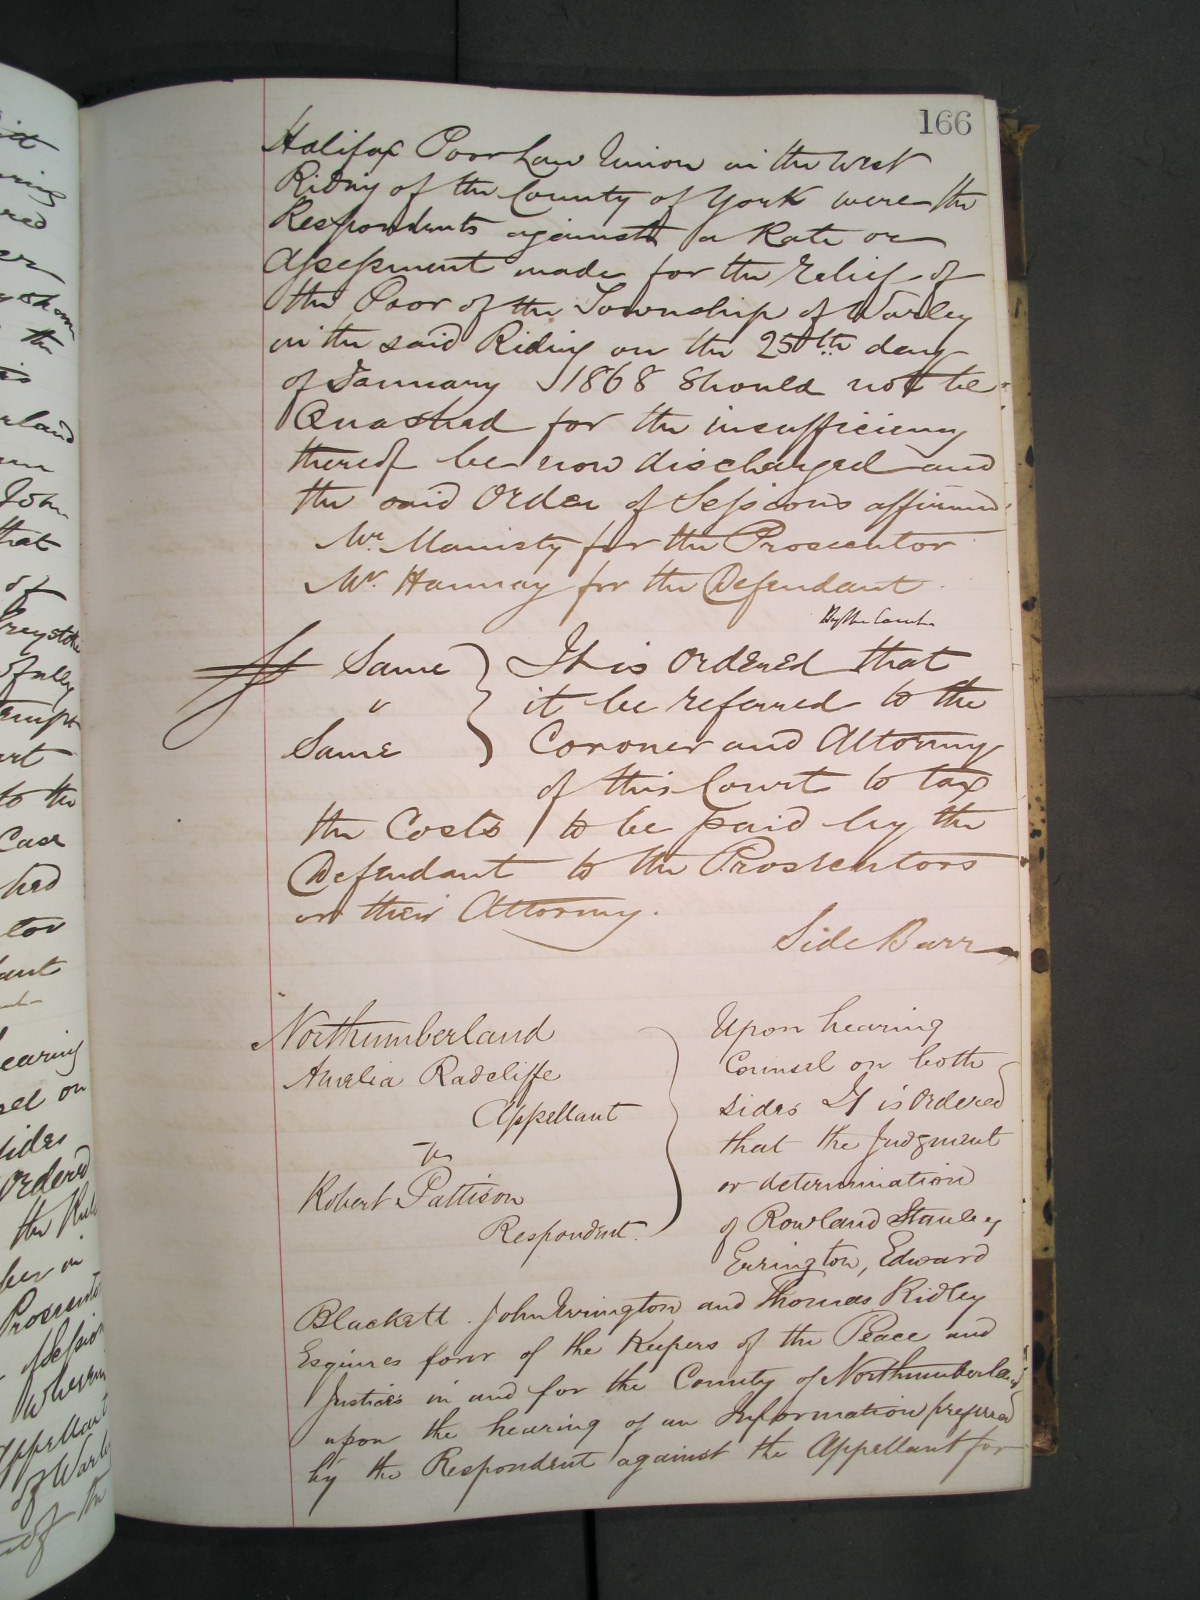 166
Halifax Poor Law Union in the West
Riding of the County of York were the
Respondents against a Rate or
Assessment made for the relief of
the Poor of the Township of Warley
in the said Riding on the 25th day
of January 1868 should not be
Quashed for the insufficiency
thereof be now discharged and
the said Order of Sessions affirmed
Mr. Manisty for the Prosecutor
Mr. Hannay for the Defendant
By the Court
Same } It is Ordered that
" it be referred to the
Same Coroner and Attorney
of this Court to tax
the Costs to be paid by the
Defendant to the Prosecutors
or their Attorney.
Side Barr
Northumberland } Upon hearing
Amelia Radcliffe Counsel on both
Appellant sides It is Ordered
vs that the Judgment
or determination
Robert Pattison
Respondent of Rowland Stanley
Errington, Edward
Blackett John Errington and Thomas Ridley
Esquires four of the Keepers of the Peace and
Justices in and for the County of Northumberland
upon the hearing of an Information preferred
by the Respondent against the Appellant for